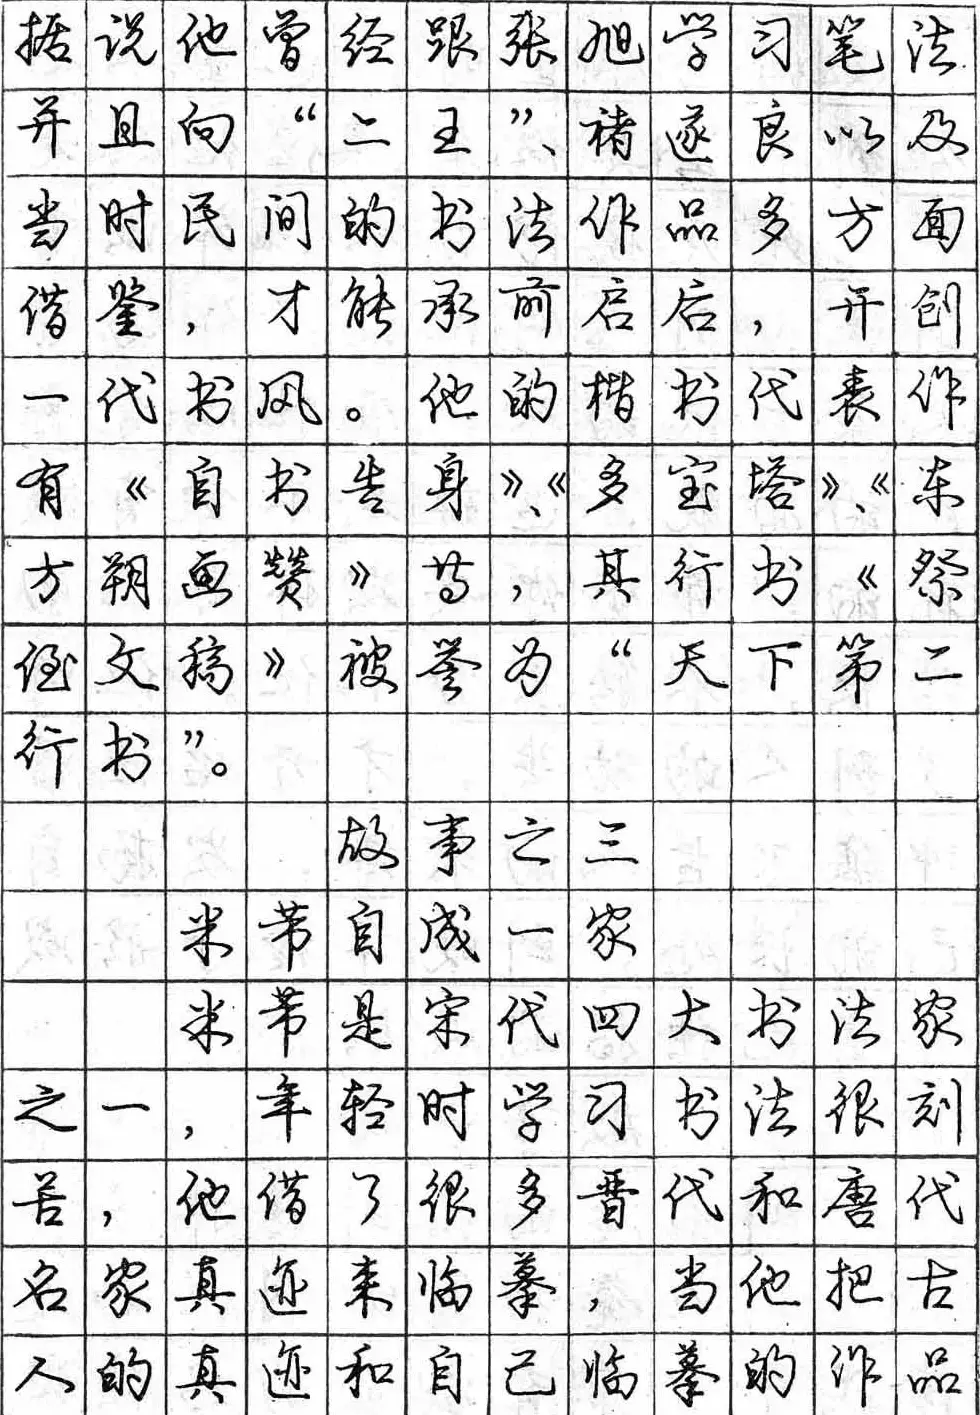 据说他曾经跟张旭学习笔法
并且向“二王”、褚遂良以及
当时民间的书法作品多方面
借鉴，才能承前启后，开创
一代书风。他的楷书代表作
有《自书告身》、《多宝塔》、《东
方朔画赞》等，其行书《祭
侄文稿》被誉为“天下第二
行书”。
故事之三
米芾自成一家
米芾是宋代四大书法家
之一，年轻时学习书法很刻
苦，他借了很多晋代和唐代
名家真迹来临摹，当他把古
人的真迹和自己临摹的作品